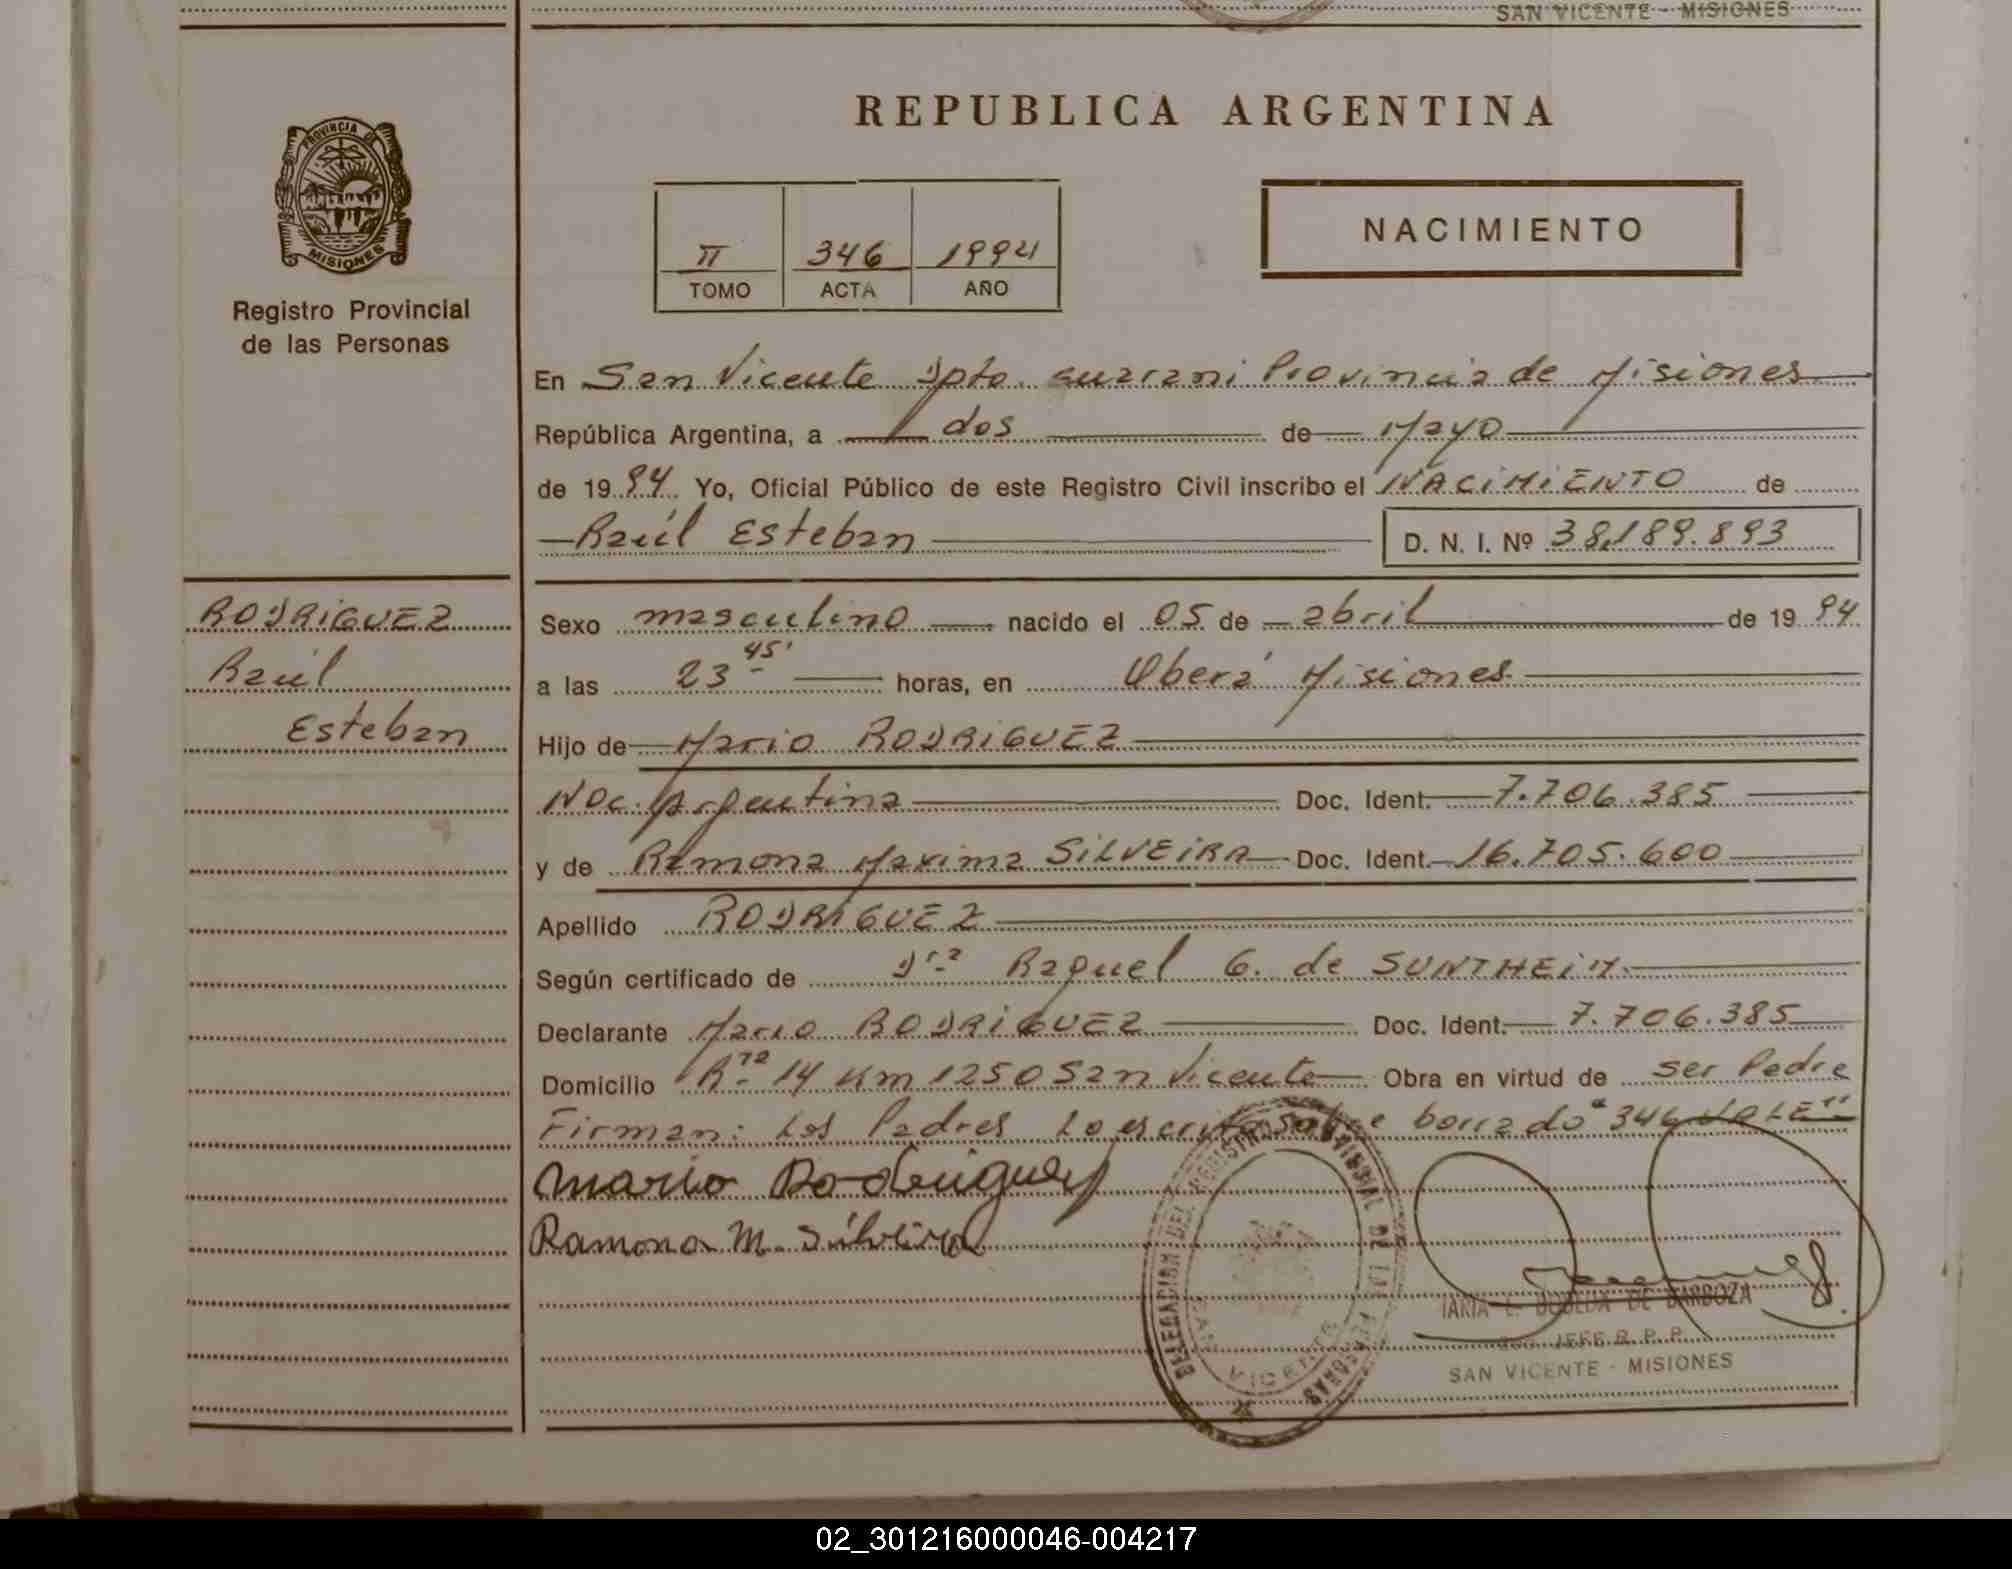 SAN VICENTE - MISIONES
REPUBLICA ARGENTINA
PROVINCIA DE
MISIONES
Registro Provincial
de las Personas
II 346 1994
TOMO ACTA AÑO
NACIMIENTO
En San Vicente Dpto. Guarani Provincia de Misiones
República Argentina, a dos de Mayo
de 1994 Yo, Oficial Público de este Registro Civil inscribo el NACIMIENTO de
Raúl Esteban D. N. I. Nº 38.189.893
RODRIGUEZ
Raúl
Esteban
Sexo masculino nacido el 05 de abril de 1994
a las 23 45' horas, en Oberá Misiones
Hijo de Mario RODRIGUEZ
Nac. Argentina Doc. Ident. 7.706.385
y de Ramona Maxima SILVEIRA Doc. Ident. 16.705.600
Apellido RODRIGUEZ
Según certificado de Dra Raquel G. de SUNTHEIM
Declarante Mario RODRIGUEZ Doc. Ident. 7.706.385
Domicilio Rta 14 Km 1250 San Vicente Obra en virtud de ser Padre
Firman: Los Padres Lo escrito sobre borrado "346 VALE"
Mario Rodriguez
Ramona M. Silveira
DELEGACION DEL REGISTRO PROVINCIAL DE LAS PERSONAS
SAN VICENTE
DE BARBOZA
JEFE R. P. P.
SAN VICENTE - MISIONES
02_301216000046-004217